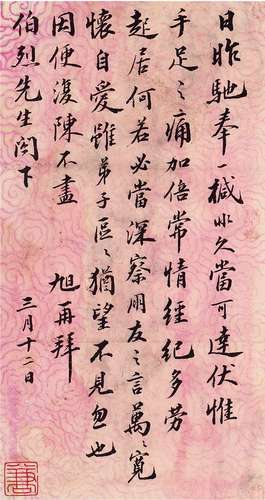 日昨馳奉一椷非久當可達伏惟
手足之痛加倍常情經紀多勞
起居何若必當深察朋友之言萬〻寬
懷自愛雖弟子區〻猶望不見忽也
因便復陳不盡　旭再拜
伯烈先生閣下
三月十二日